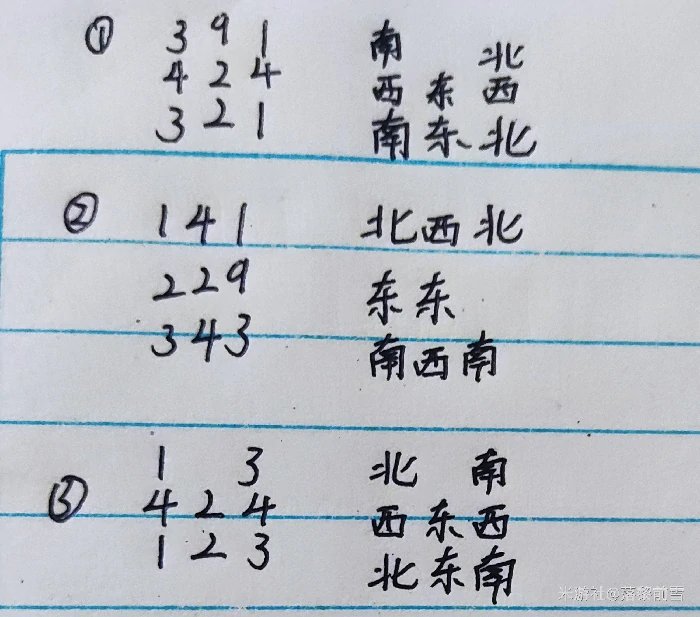 ① 3 9 1 南 北
4 2 4 西 东 西
3 2 1 南 东 北
② 1 4 1 北 西 北
2 2 9 东 东
3 4 3 南 西 南
1 3 北 南
③ 4 2 4 西 东 西
1 2 3 北 东 南
米游社@落黎前雪